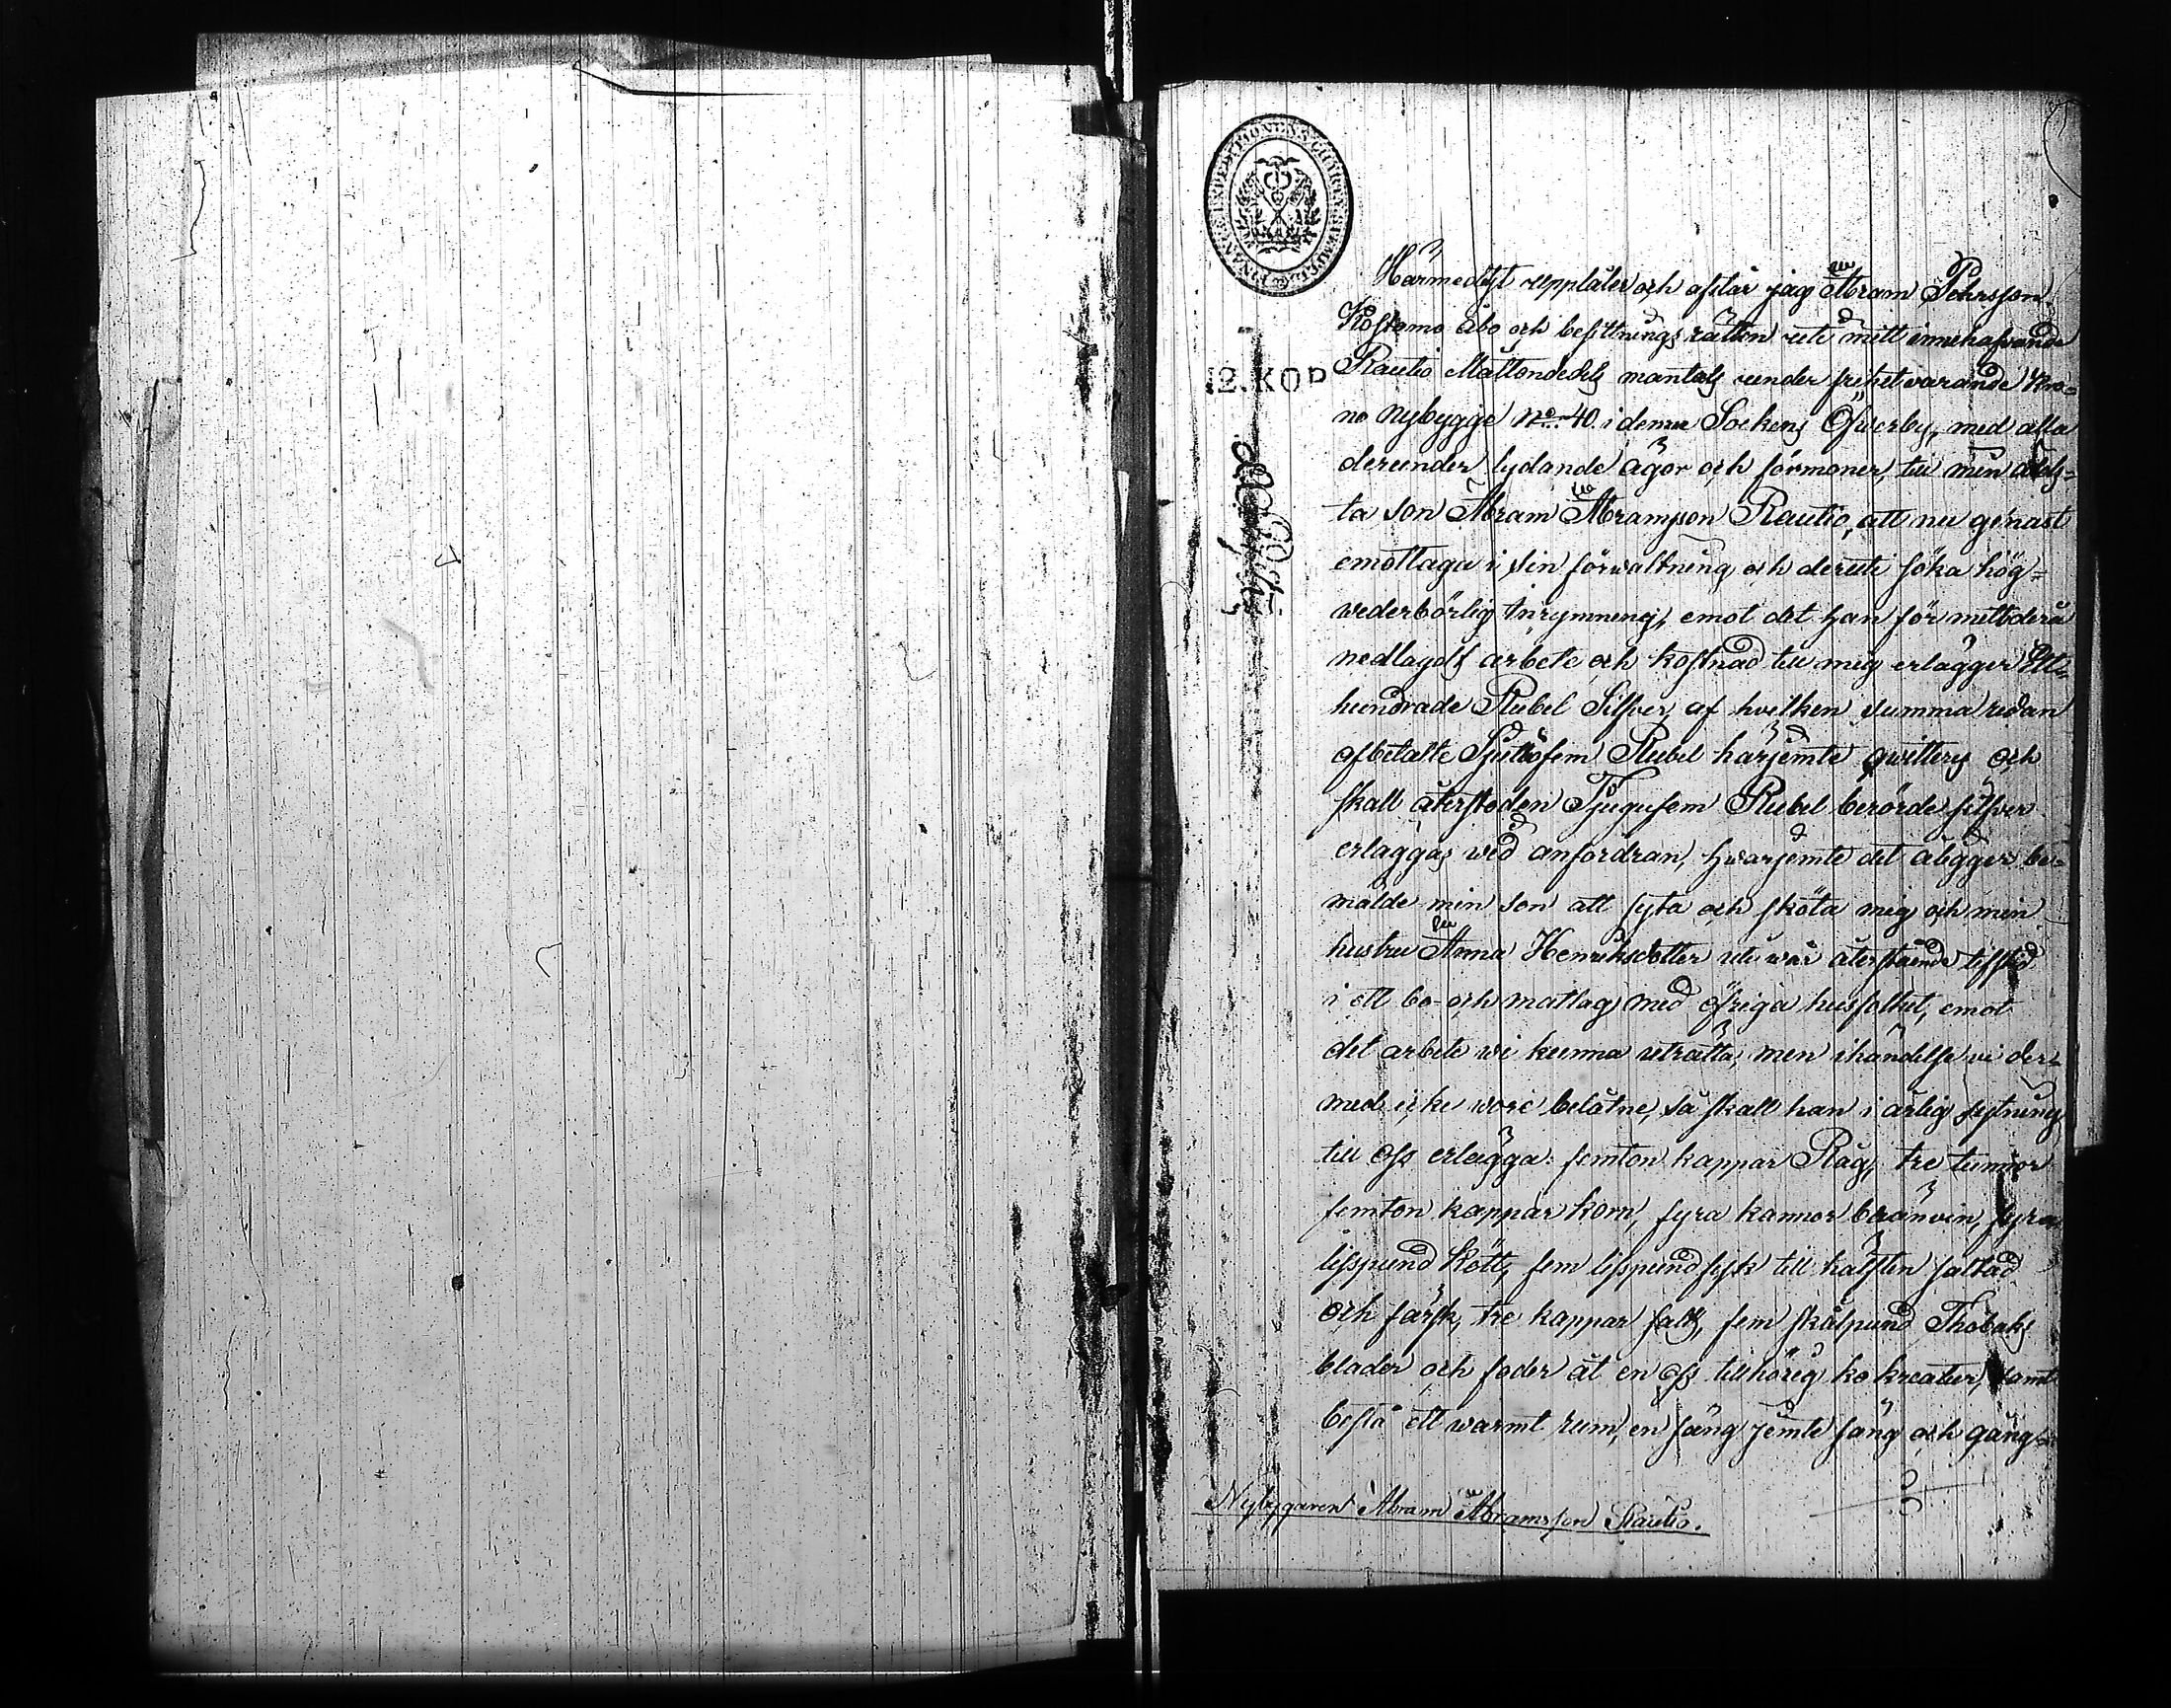 FINANS-EXPEDITIONENS CHARTÆ
12. KOP
Härmedelst upplåter och afstår jag Abram Pehrsson
Kostamo åbo och besittnings rätten uti mitt innehafvande
Rautio Mattondedels mantals under frihet varande Kro-
no nybygge No 40 i denna Sockens Öfverby, med alla
derunder lydande ägor och förmoner, till min älds-
ta son Abram Abramsson Rautio, att nu genast
emottaga i sin förvaltning och deruti söka hög-
vederbörlig inrymning, emot det han för mitt derå
nedlagdt arbete och kostnad till mig erlägger Ett-
hundrade Rubel Silfver, af hvilken summa redan
afbetalte Sjuttiofem Rubel härjemte qvitters och
skall återstoden Tjugufem Rubel berörde silfver
erläggas wid anfordran, hvarjemte det åligger be-
mälde min son att syta och sköta mig och min
hustru Anna Henriksdotter uti vår återstående lifstid
i ett bo- och matlag med öfriga husfolket, emot
det arbete vi kunna uträtta, men ihändelse vi der-
med icke wore belåtne, så skall han i årlig sytning
till oss erlägga: femton kappar Råg, tre tunnor
femton kappar korn, fyra kannor bränvin, fyra
lispund kött, fem lispund fisk till hälften saltad
och färsk, tre kappar salt, fem skålpund Thobaks
blader och foder åt en oss tillhörig ko kreatur, samt
bestå ett warmt rum, en säng jemte säng och gång-
Nybyggaren Abram Abramsson Rautio.